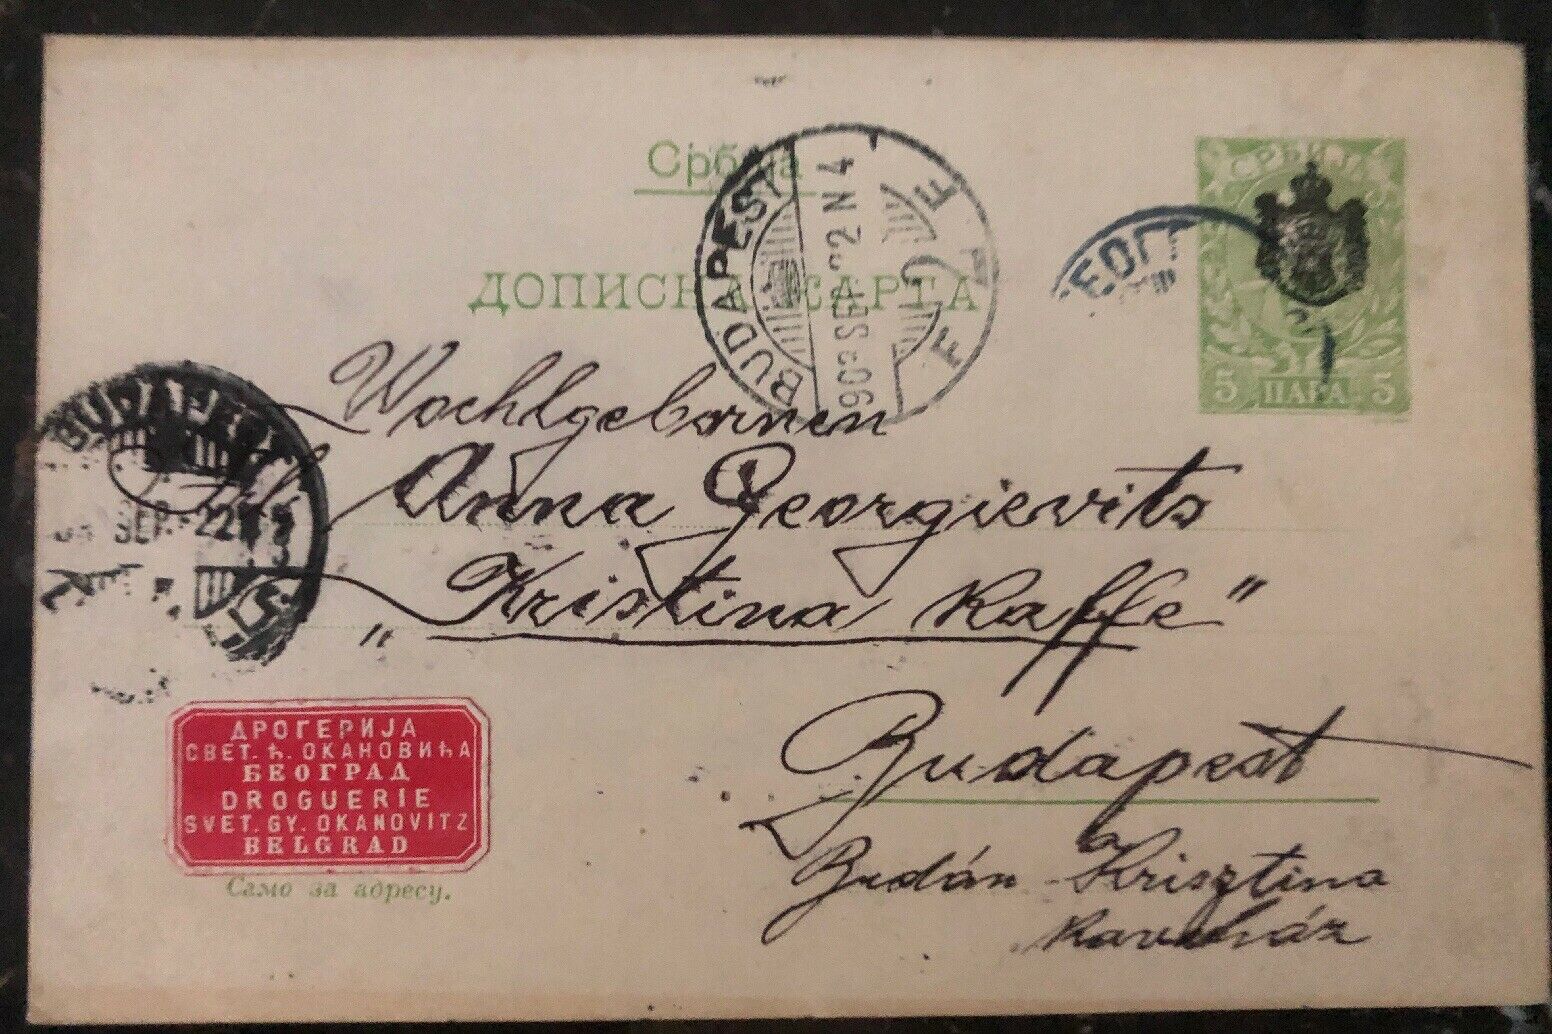 Србија
ДОПИСНА КАРТА
СРБИЈА
5 ПАРА 5
BUDAPEST
SEP 22 N 4
ЕОГР
Wochlgebornen
Anna Georgievits
„Kristina Kaffe"
Budapest
Budán a Krisztina
Kaveház
SEP. 22
ДРОГЕРИЈА
СВЕТ. Ђ. ОКАНОВИЋА
БЕОГРАД
DROGUERIE
SVET. GY. OKANOVITZ
BELGRAD
Само за адресу.